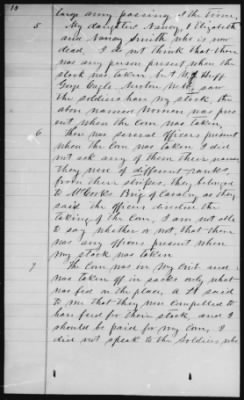 10
large army passing at the time,
5 My daughters Nancy & Elizabeth
and Nancy Smith who is now
dead, I do not think that there
was any person present when the
stock was taken but
Gage Cagle Newton saw
the soldiers have my stock, the
above named Women was pres
ent when the Corn was taken,
6 There was several officers present
when the Corn was taken I did
not ask any of them their names
they were of different ranks,
from their stripes, they belonged
to McCooks Brig of Cavalry as they
said the officers directed the
taking of the Corn, I am not able
to say whether or not, that there
was any officers present when
my stock was taken
7 The Corn was in my Crib and
was taken off in sacks only what
was fed on the place, a Lt said
to me that they were compelled to
have feed for their stock, and I
should be paid for my Corn, I
did not speak to the soldiers who